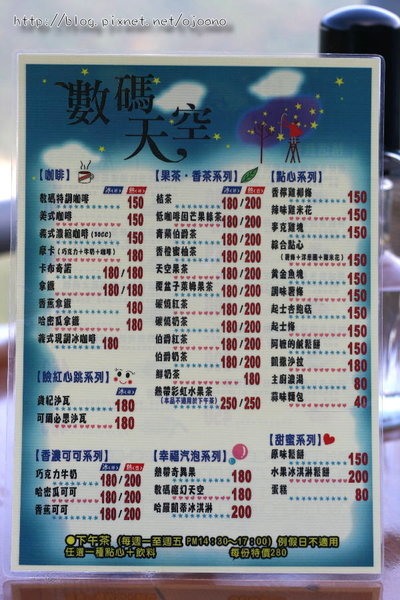 http://blog.pixnet.net/ojoono
數碼
天空
【咖啡】
數碼特調咖啡 150
美式咖啡 150
義式濃縮咖啡 (50CC) 150
摩卡 (巧克力+牛奶+咖啡) 180
卡布奇諾 180/180
拿鐵 180/180
香蕉拿鐵 180
哈密瓜拿鐵 180
義式現調冰咖啡 180
【臉紅心跳系列】
貴妃沙瓦 180
可爾必思沙瓦 180
【香濃可可系列】
巧克力牛奶 180/200
哈密瓜可可 180/200
香蕉可可 180/200
【果茶·香茶系列】
桔茶 180/200
低咖啡因芒果綠茶 180/200
青蘋伯爵茶 180/200
香橙蜜柚茶 180/200
天空果茶 180/200
覆盆子萊姆果茶 180/200
碳燒紅茶 180/200
碳燒奶茶 180/200
伯爵紅茶 180/200
伯爵奶茶 180/200
鮮奶茶 180
熱帶彩虹水果茶
(本品不適用於下午茶) 250/250
【幸福汽泡系列】
熱帶奇異果 180
數碼魔幻天空 180
哈羅凱蒂冰淇淋 200
【點心系列】
香檸雞柳條 150
辣味雞米花 150
麥克雞塊 150
綜合點心
(薯條+洋蔥圈+雞米花) 150
黃金魚塊 150
調味薯條 150
起士杏鮑菇 150
起士條 150
阿嬤的鹹鬆餅 150
凱薩沙拉 180
主廚濃湯 80
蒜味麵包 40
【甜蜜系列】
原味鬆餅 150
水果冰淇淋鬆餅 200
蛋糕 80
●下午茶（每週一至週五 PM14:30~17:00）例假日不適用
任選一種點心+飲料 每份特價280